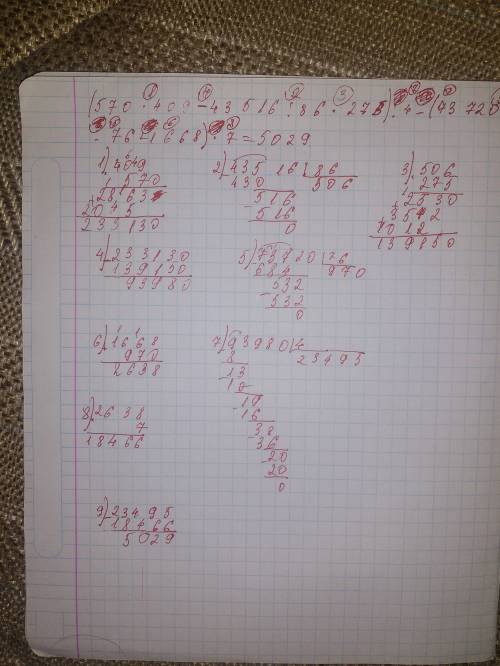 (570 · 409 − 43516 : 86 · 275) : 4 − (73720
: 76 + 1668) · 7 = 5029
1) 409
570
2863
2045
233130
2) 43516 | 86
430 506
516
516
0
3) 506
275
2530
3542
1012
139150
4) 233130
139150
93980
5) 73720 | 76
684 970
532
532
0
6) 1668
970
2638
7) 93980 | 4
8 23495
13
12
19
16
38
36
20
20
0
8) 2638
7
18466
9) 23495
18466
5029